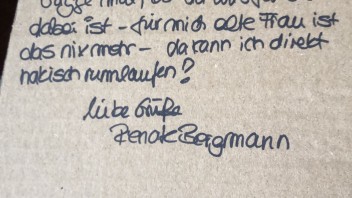 dabei ist - für mich alte Frau ist
das nix mehr - da kann ich direkt
nakisch rumlaufen?
liebe Grüße
Renate Bergmann